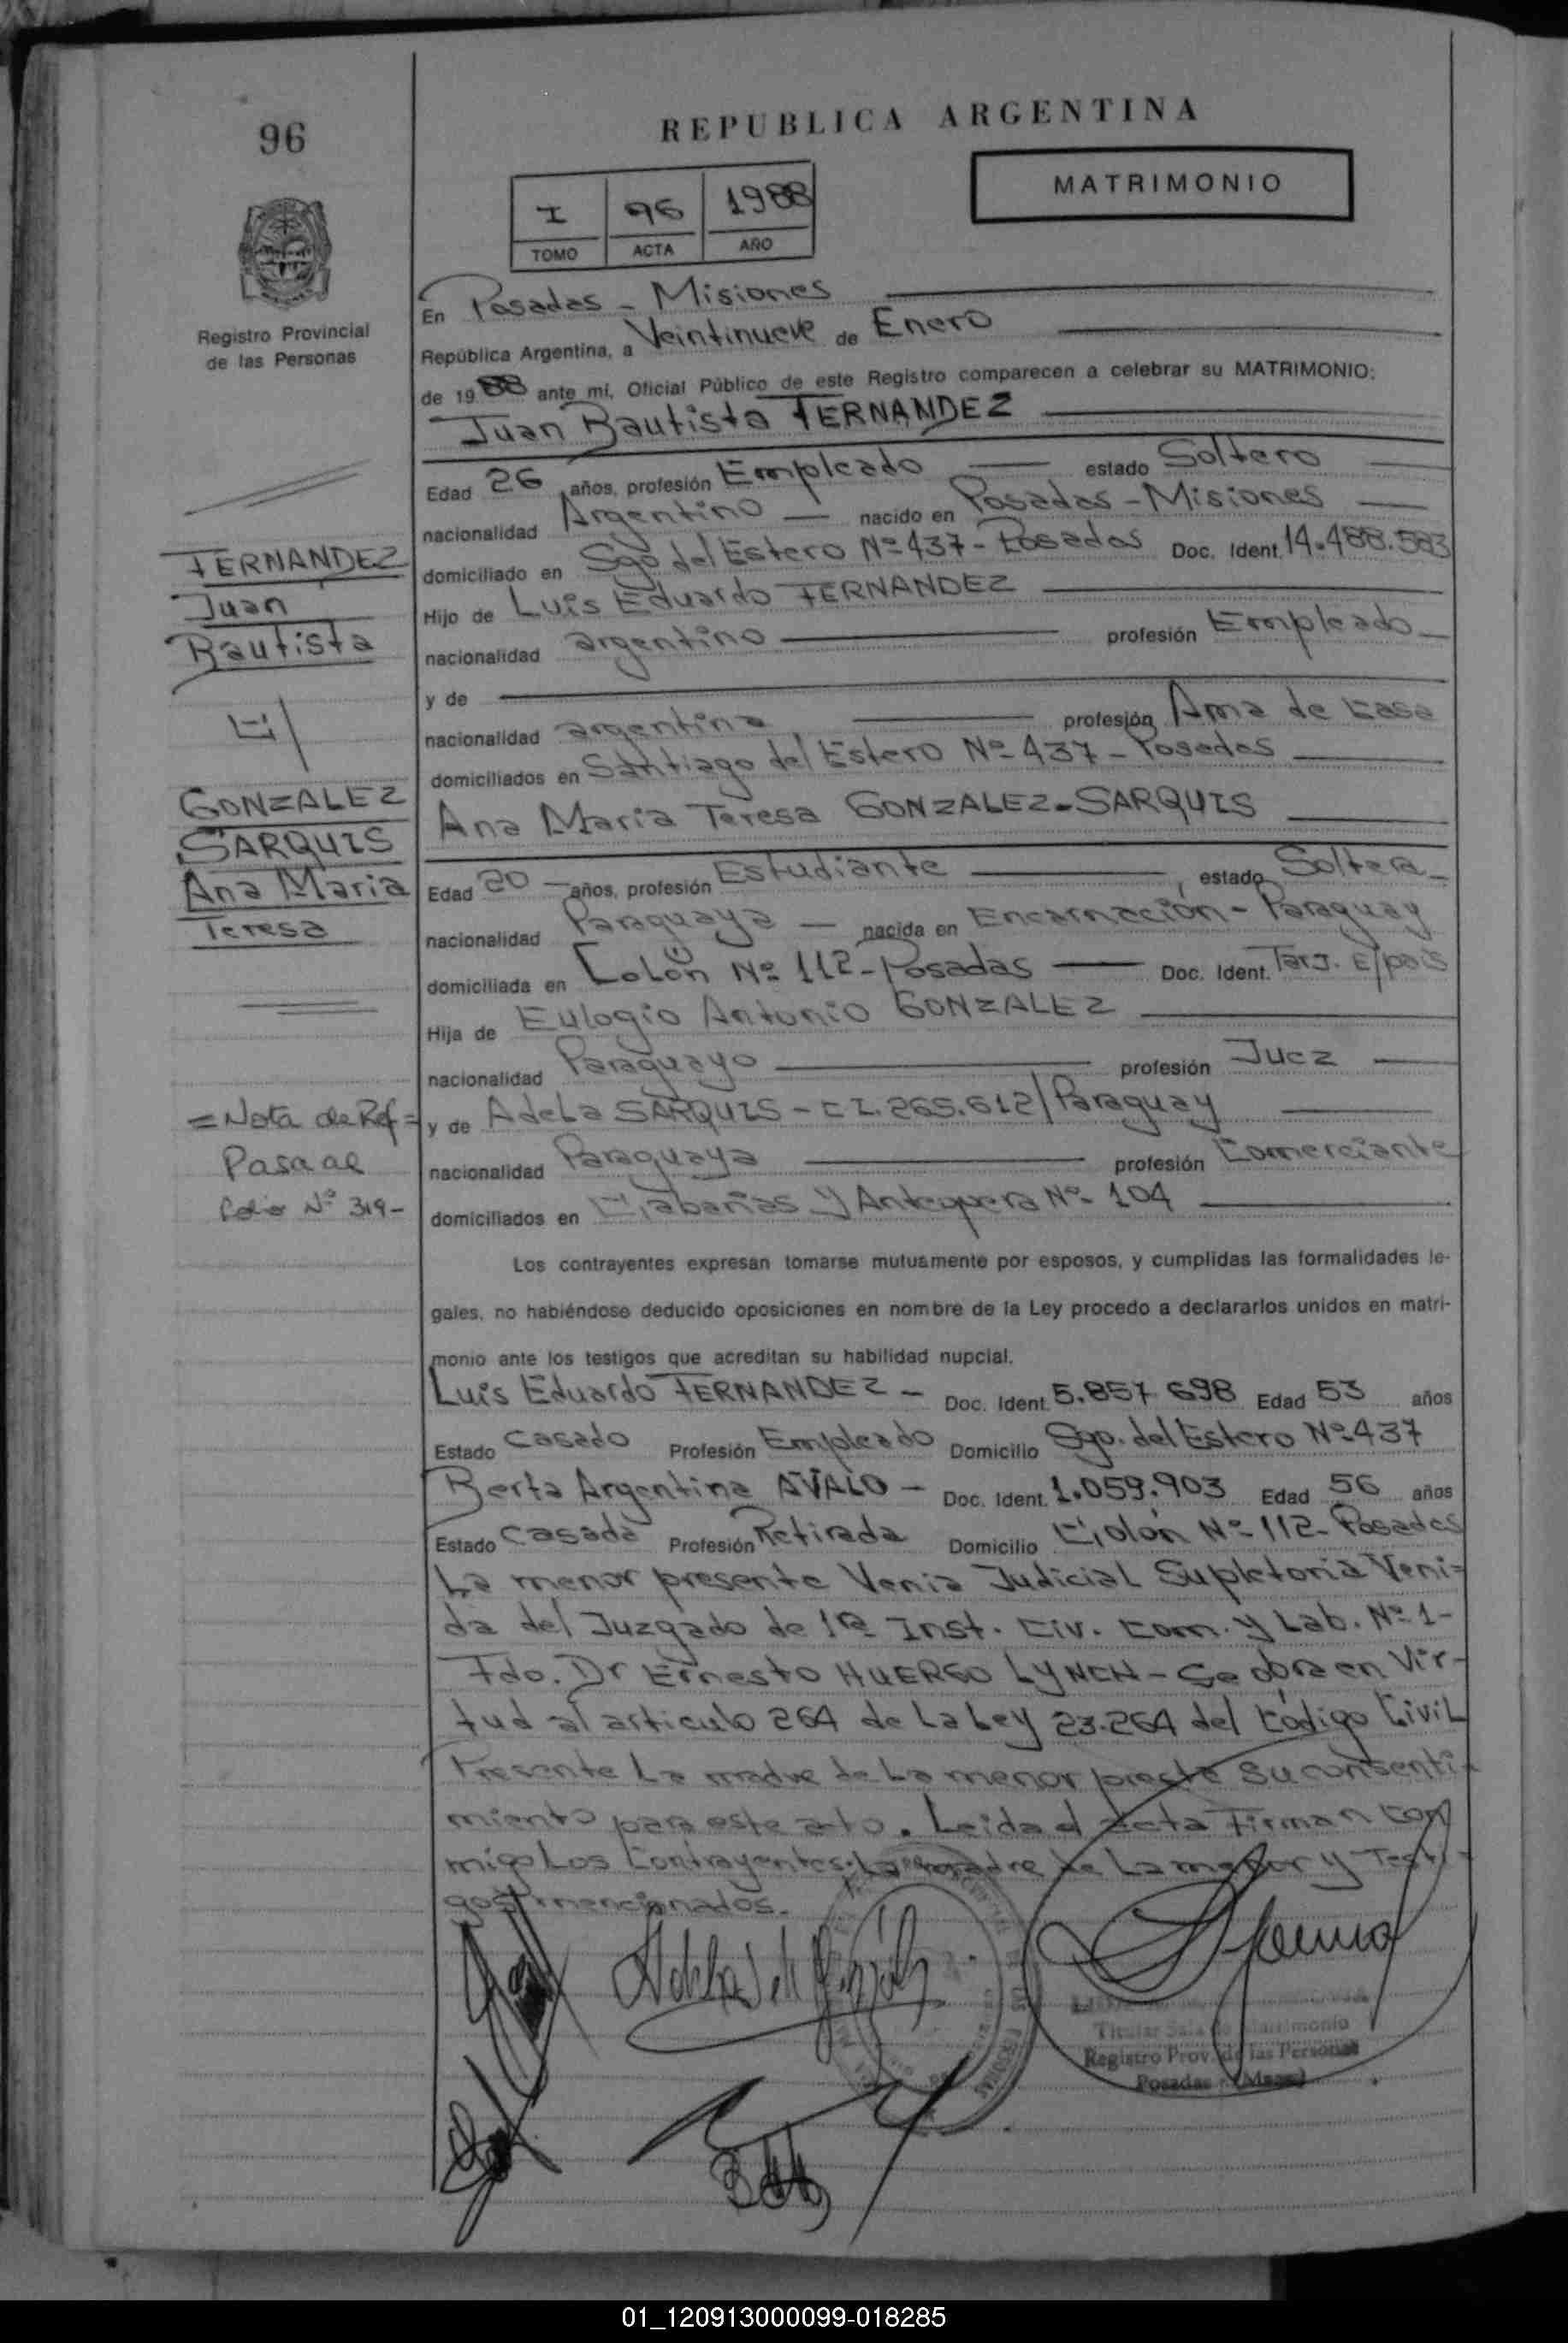 96
REPUBLICA ARGENTINA
MATRIMONIO
I 96 1988
TOMO ACTA AÑO
Registro Provincial
de las Personas
En Posadas - Misiones
República Argentina, a Veintinueve de Enero
de 1988 ante mí, Oficial Público de este Registro comparecen a celebrar su MATRIMONIO:
Juan Bautista FERNANDEZ
Edad 26 años, profesión Empleado estado Soltero
nacionalidad Argentino nacido en Posadas - Misiones
domiciliado en Sgo del Estero Nº 437 - Posadas Doc. Ident. 14.488.583
Hijo de Luis Eduardo FERNANDEZ
nacionalidad argentino profesión Empleado
y de
nacionalidad argentina profesión Ama de Casa
domiciliados en Santiago del Estero Nº 437 - Posadas
Ana Maria Teresa GONZALEZ-SARQUIS
Edad 20 años, profesión Estudiante estado Soltera
nacionalidad Paraguaya nacida en Encarnación - Paraguay
domiciliada en Colón Nº 112 - Posadas Doc. Ident. Tarj. E/país
Hija de Eulogio Antonio GONZALEZ
nacionalidad Paraguayo profesión Juez
y de Adela SARQUIS - CI. 265.612/Paraguay
nacionalidad Paraguaya profesión Comerciante
domiciliados en Cabañas y Antequera Nº 104
FERNANDEZ
Juan
Bautista
C/
GONZALEZ
SARQUIS
Ana Maria
Teresa
= Nota de Ref =
Pasa al
folio Nº 319-
Los contrayentes expresan tomarse mutuamente por esposos, y cumplidas las formalidades le-
gales, no habiéndose deducido oposiciones en nombre de la Ley procedo a declararlos unidos en matri-
monio ante los testigos que acreditan su habilidad nupcial.
Luis Eduardo FERNANDEZ - Doc. Ident. 5.857.698 Edad 53 años
Estado Casado Profesión Empleado Domicilio Sgo. del Estero Nº 437
Berta Argentina AVALO - Doc. Ident. 1.059.903 Edad 56 años
Estado Casada Profesión Retirada Domicilio Colón Nº 112 - Posadas
La menor presente Venia Judicial Supletoria Veni=
da del Juzgado de 1ra Inst. Civ. Com. y Lab. Nº 1-
Fdo. Dr Ernesto HUERGO LYNCH - Se obra en Vir-
tud al articulo 264 de la Ley 23.264 del Código Civil
Presente la madre de la menor preste su consenti-
miento para este acto. Leida el Acta Firman con
migo Los Contrayentes, La madre de la menor y Testi-
gos mencionados.
Titular Sala de Matrimonio
Registro Prov. de las Personas
Posadas (Mnes)
01_120913000099-018285